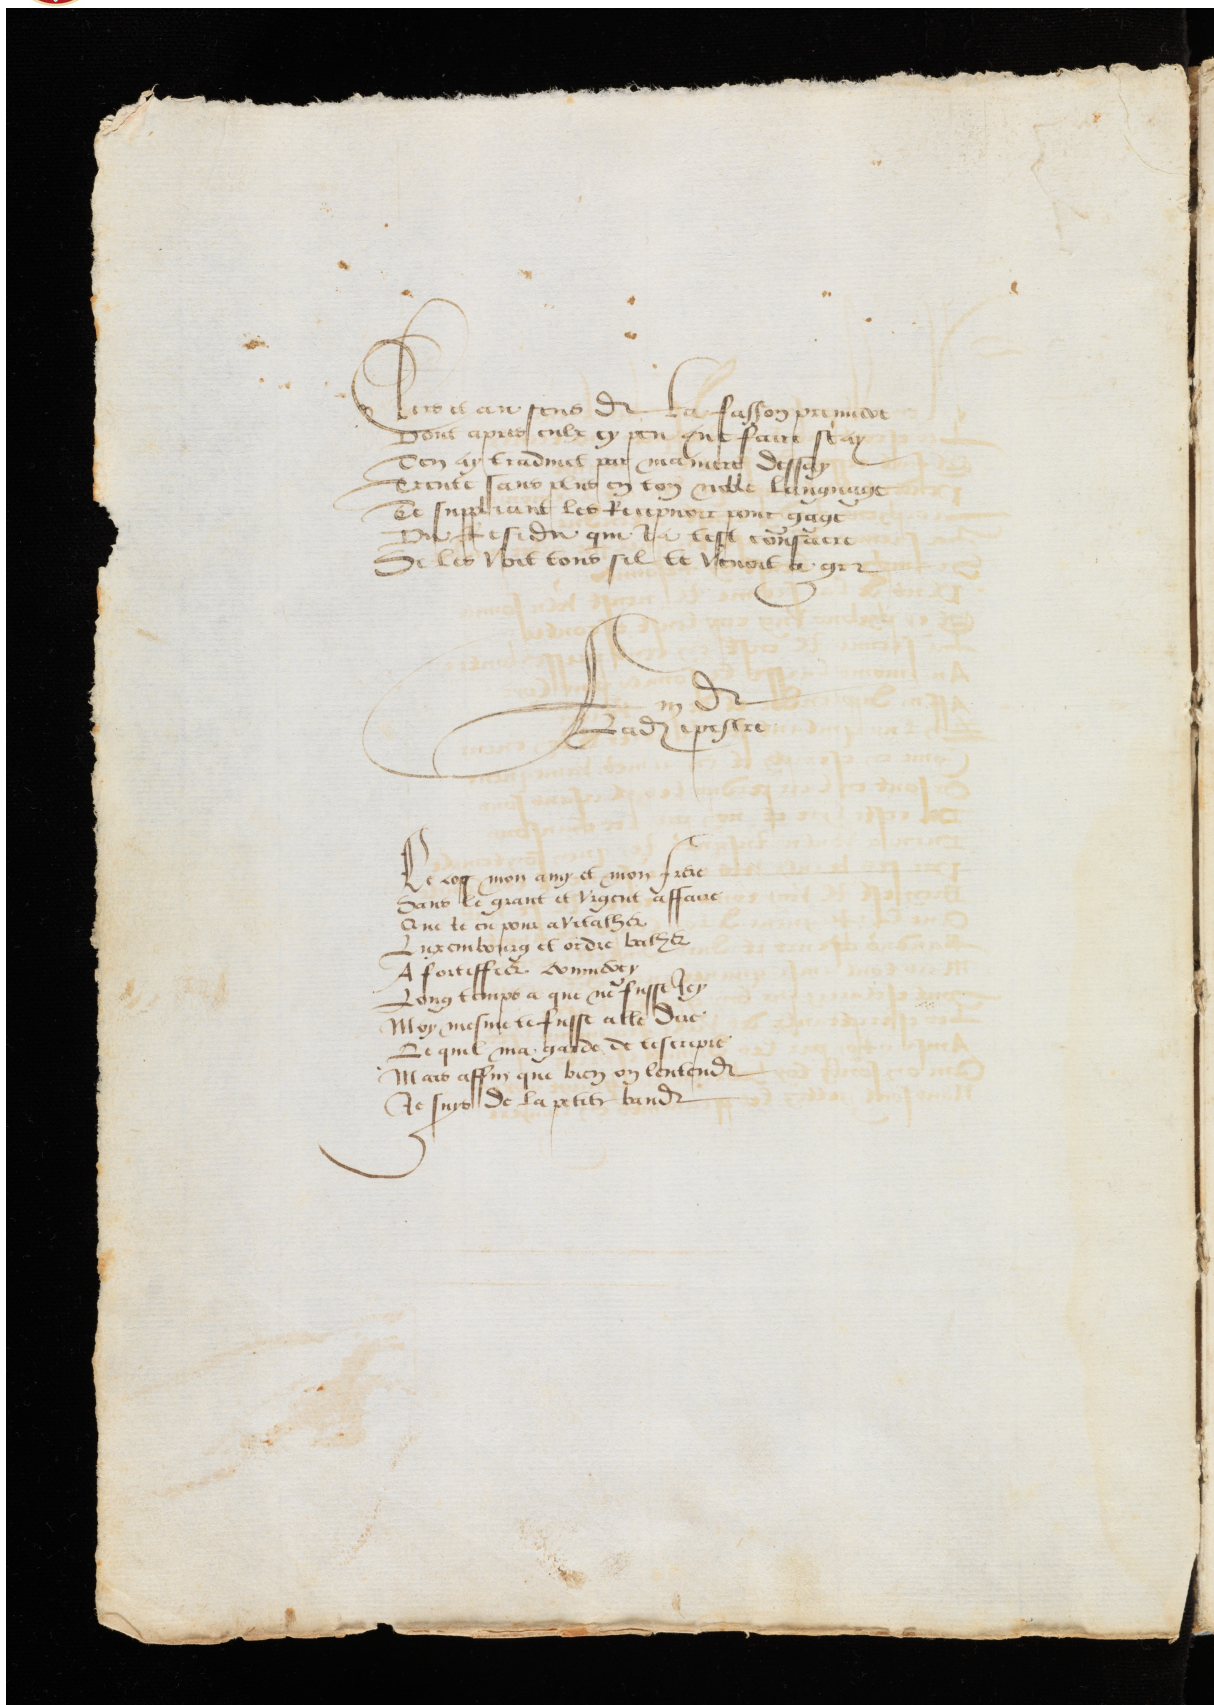 Vers et au sens de la fasson premiere
Dont apres eulx cy peu que faire sçay
Ten ay traduict par maniere dessay
Trente sans plus en ton noble languaige
Te suppliant les Recepvoir pour gaige
Du Residu qui ja test consacre
Se les voir tous sil te venoit a gre
Fin de
Ladicte epistre
Le coq mon amy et mon frere
Sans le grant et urgent affaire
Que te en pour avitailher
Luxembourg et ordre bailher
A fortiffier
Long temps a que ne fusse Icy
Moy mesme te fusse alle dire
Ce quil ma garde de tescripre
Mais affin que bien on lentende
Je suys de la petite bande